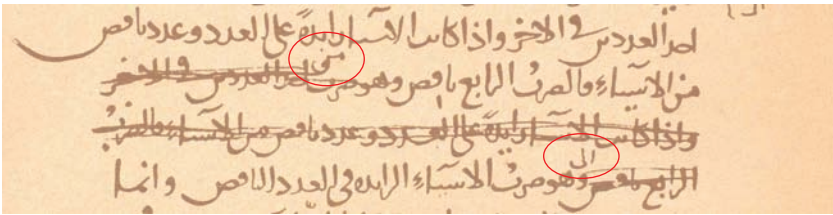 احد العددين في الاخر واذا كانت الاشيا زايدة على العدد وعدد ناقص
من
من الاشياء فالضرب الرابع ناقص وهو ضرب احد العددين في الاخر
واذا كانت الاشيا زايدة على العدد وعدد ناقص من الاشياء فالضرب
الى
الرابع ناقص وهو ضرب الاشياء الزايدة في العدد الناقص وانما